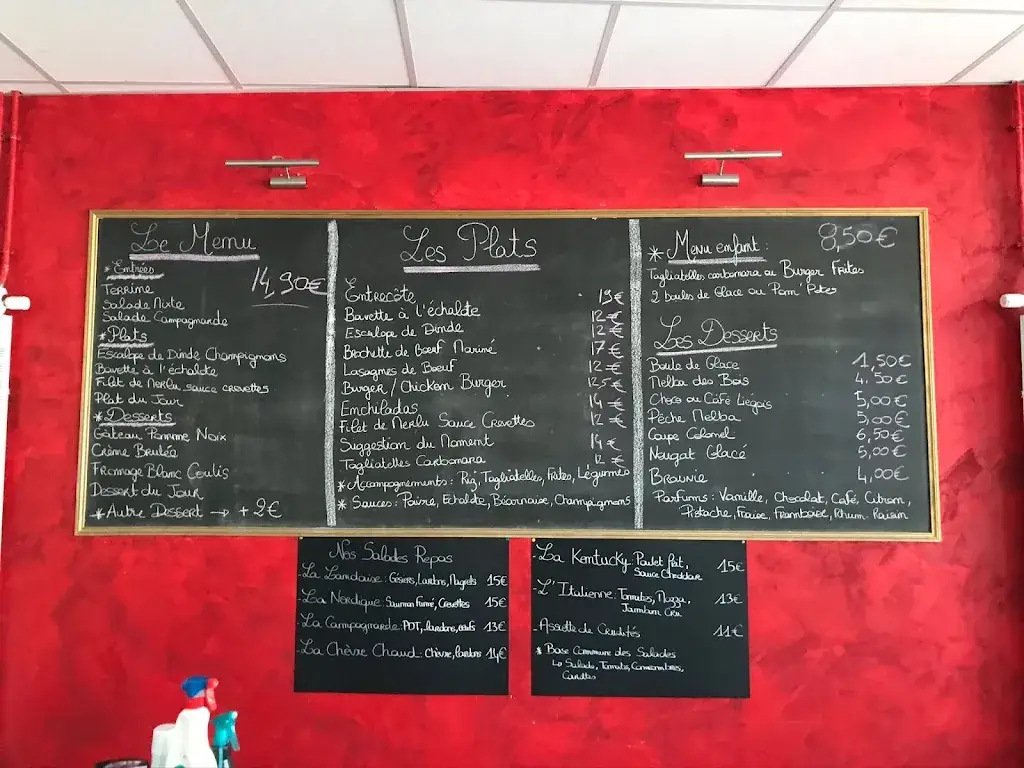 Le Menu
14,90€
* Entrées
Terrine
Salade Mixte
Salade Campagnarde
* Plats
Escalope de Dinde Champignons
Bavette à l'échalote
Filet de Merlu sauce crevettes
Plat du Jour
* Desserts
Gâteau Pomme Noix
Crème Brulée
Fromage Blanc Coulis
Dessert du Jour
* Autre Dessert → + 2€
Les Plats
Entrecôte 19€
Bavette à l'échalote 12€
Escalope de Dinde 12€
Brochette de Bœuf Mariné 17€
Lasagnes de Bœuf 12€
Burger / Chicken Burger 12,5€
Enchiladas 14€
Filet de Merlu Sauce Crevettes 12€
Suggestion du Moment 14€
Tagliatelles Carbonara 12€
* Accompagnements : Riz, Tagliatelles, Frites, Légumes
* Sauces : Poivre, Echalote, Béarnaise, Champignons
* Menu enfant : 8,50€
Tagliatelles carbonara ou Burger Frites
2 boules de Glace ou Pom'Potes
Les Desserts
Boule de Glace 1,50€
Melba des Bois 4,50€
Choco ou Café Liégois 5,00€
Pêche Melba 5,00€
Coupe Colonel 6,50€
Nougat Glacé 5,00€
Brownie 4,00€
Parfums : Vanille, Chocolat, Café, Citron,
Pistache, Fraise, Framboise, Rhum-Raisin
Nos Salades Repas
- La Landaise : Gésiers, Lardons, Magrets 15€
- La Nordique : Saumon Fumé, Crevettes 15€
- La Campagnarde : PDT, lardons, œufs 13€
- La Chèvre Chaud : Chèvre, lardons 14€
- La Kentucky : Poulet Pané, 15€
Sauce Cheddar
- L'Italienne : Tomates, Mozza, 13€
Jambon Cru
- Assiette de Crudités 11€
* Base Commune des Salades
↳ Salade, Tomates, Concombres,
Carottes